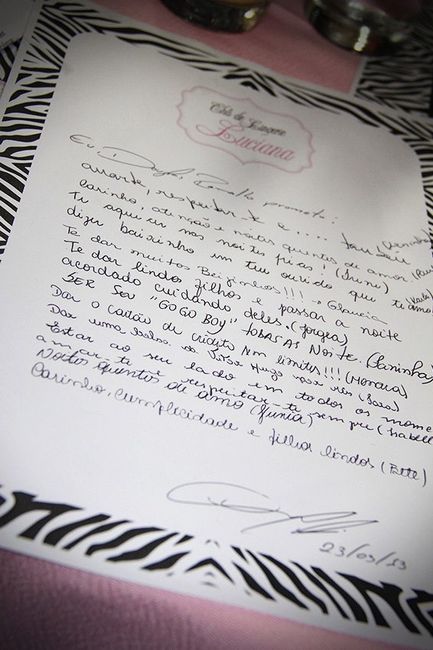 Chá de Lingerie
Luciana
Eu, prometo:
amar-te, respeitar-te e .... 
carinho, atenção e noites quentes de amor. (
Te aquecer nas noites frias! (
dizer baixinho em teu ouvido que te amo
Te dar muitos Beijinhos!!! → Glaucia
Te dar lindos filhos e passar a noite
acordado cuidando deles. (
SER SEU "GO GO BOY" TODAS AS NOITE. (
Dar o cartão de crédito sem limites!!! (Monara)
Dar uma bolsa Victor Hugo por mês (
Estar ao seu lado em todos os mome
amar-te e respeitar-te sempre (Isabell
Noites quentes de amor (Junia)
Carinho, cumplicidade e filhos lindos (Bete)
23/03/13